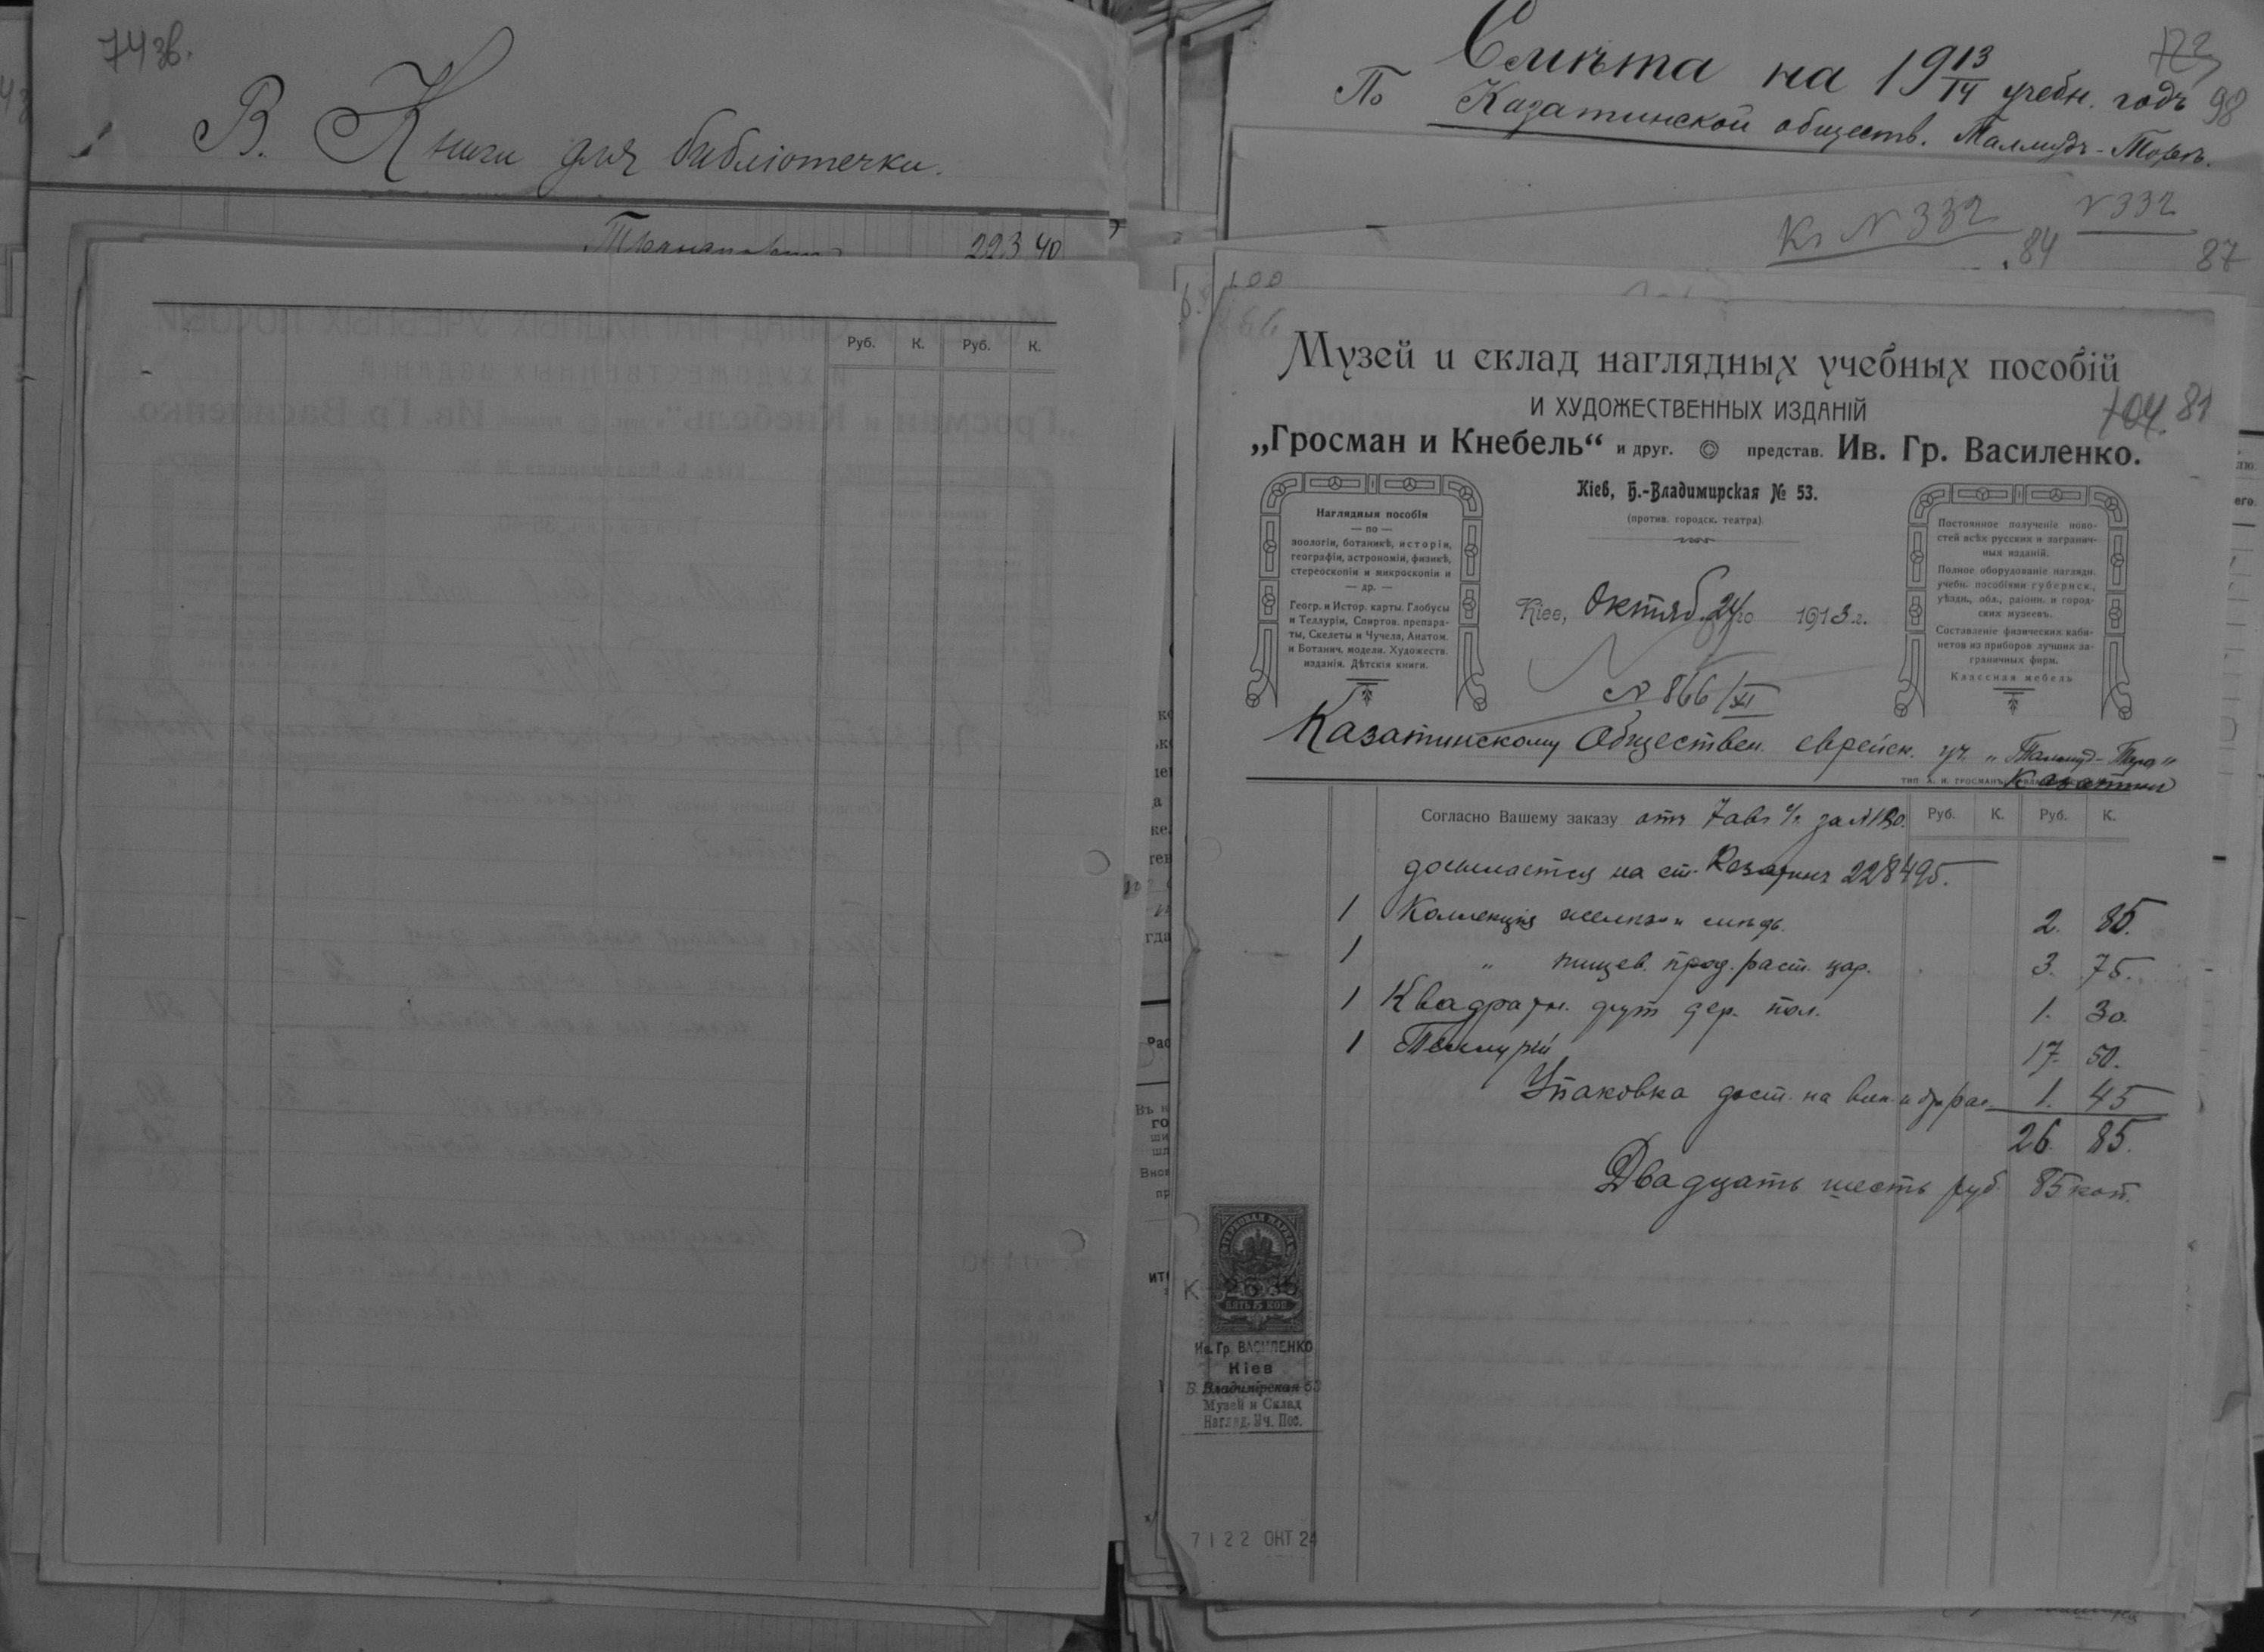 74 зв.
В. Книги для библіотечки.
223 40
Руб. К. Руб. К.
Смѣта на 19 13/14 учебн. годъ
98
По Казатинской обществ. Талмудъ-Торѣ.
Кг N 332
N 332
84
87
100
866
Музей и склад наглядных учебных пособій
И ХУДОЖЕСТВЕННЫХ ИЗДАНІЙ
104. 81
„Гросман и Кнебель“ и друг. представ. Ив. Гр. Василенко.
Кіев, Б.-Владимирская № 53.
(против. городск. театра)
Наглядныя пособія
— по —
зоологіи, ботаникѣ, исторіи,
географіи, астрономіи, физикѣ,
стереоскопіи и микроскопіи и
— др. —
Геогр. и Истор. карты. Глобусы
и Теллуріи, Спиртов. препара-
ты, Скелеты и Чучела, Анатом.
и Ботанич. модели. Художеств.
изданія. Дѣтскія книги.
Постоянное полученіе ново-
стей всѣх русских и загранич-
ных изданій.
Полное оборудованіе наглядн.
учебн. пособіями губернск.,
уѣздн., обл., раіонн. и город-
ских музеевъ.
Составленіе физических каби-
нетов из приборов лучших за-
граничных фирм.
Классная мебель
Кіев, Октяб. 24го 1913 г.
N 866/XI
Казатинскому Обществен. еврейск. уч. „Талмуд-Тора“
ТИП. А. И. ГРОСМАНЪ
Казатин
Согласно Вашему заказу отъ 7 авг. за N 130. Руб. К. Руб. К.
досылается на ст. Казатинъ 228495.
1 Коллекція желѣзо и мѣдь. 2. 85.
1 „ пищев. прод. раст. цар. 3. 75.
1 Квадратн. фут дер. пол. 1. 30.
1 Теллурій 17. 50.
Упаковка дост. на вок. и др. рас. 1. 45
26. 85.
Двадцать шесть руб. 85 коп.
ГЕРБОВАЯ МАРКА
ПЯТЬ 5 КОП
К 26 85
Ив. Гр. ВАСИЛЕНКО
Кіев
Б. Владимірская 53
Музей и Склад
Нагляд. Уч. Пос.
7122 ОКТ 24